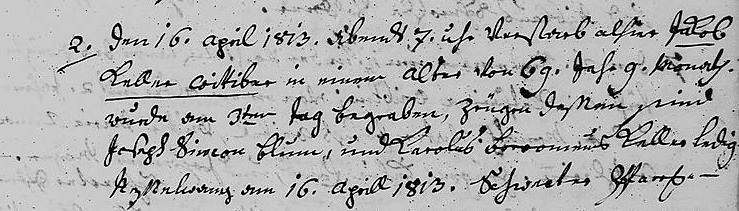 2. Den 16. April 1813. Abends 7. uhr Verstarb alhier Jakob
Keller wittiber in einem Alter von 69. Jahr 9. Monath.
wurde am 3ten Tag begraben, Zeugen dessen sind
Joseph Simon Blum, und Karolus borromeus Keller ledig
am 16. Aprill 1813. Pfarr